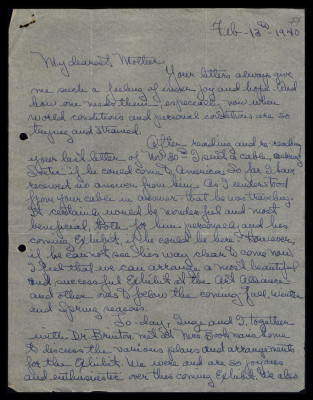 Feb - 13th - 1940
My dearest Mother
Your letters always give
me such a feeling of inner joy and hope. And
how one needs them, especially now when
world conditions and personal conditions are so
trying and strained.
After reading and re-reading
your last letter of I sent a cable, asking
if he could come to America. So far I have
received no answer from him. As I understood
from your cable in answer that he was traveling.
It certainly would be wonderful and most
beneficial, both for him personally and his
coming Exhibit, if he could be here. However,
if he can not see his way clear to come now
I feel that we can arrange a most beautiful
and successful Exhibit at the Art Alliance
and other ones to follow the coming fall, winter
and Spring seasons.
To-day, Inge and I, together
with Dr. Brinton met at Mrs home
to discuss the various plans and arrangements
for the Exhibit. We were and are so joyous
and enthusiastic over this coming Exhibit. We also